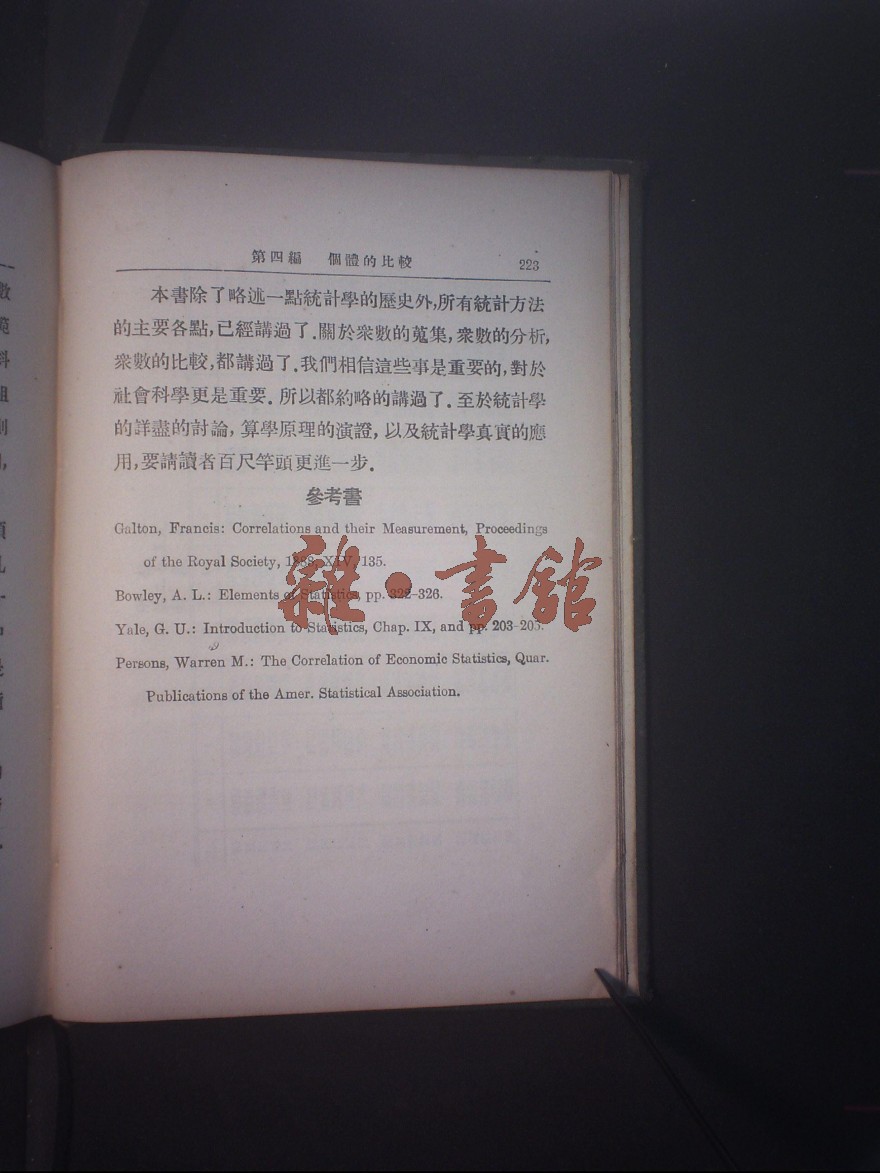 第四編 個體的比較 223
本書除了略述一點統計學的歷史外,所有統計方法
的主要各點,已經講過了.關於衆數的蒐集,衆數的分析,
衆數的比較,都講過了.我們相信這些事是重要的,對於
社會科學更是重要.所以都約略的講過了.至於統計學
的詳盡的討論,算學原理的演證,以及統計學真實的應
用,要請讀者百尺竿頭更進一步.
參考書
Galton, Francis: Correlations and their Measurement, Proceedings
of the Royal Society, 1888, XIV, 135.
Bowley, A. L.: Elements of Statistics, pp. 322-326.
Yale, G. U.: Introduction to Statistics, Chap. IX, and pp. 203-205.
Persons, Warren M.: The Correlation of Economic Statistics, Quar.
Publications of the Amer. Statistical Association.
雜·書館